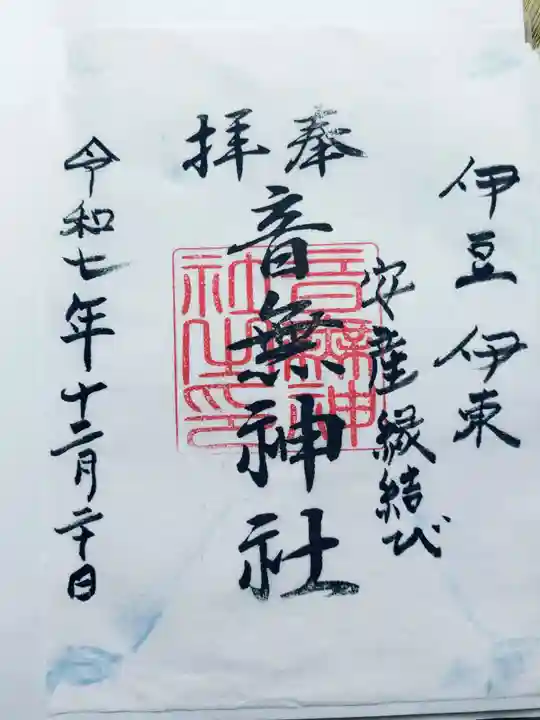 伊豆 伊東
安産縁結び
奉拝
音無神社
音無神
社之印
令和七年十二月二十日